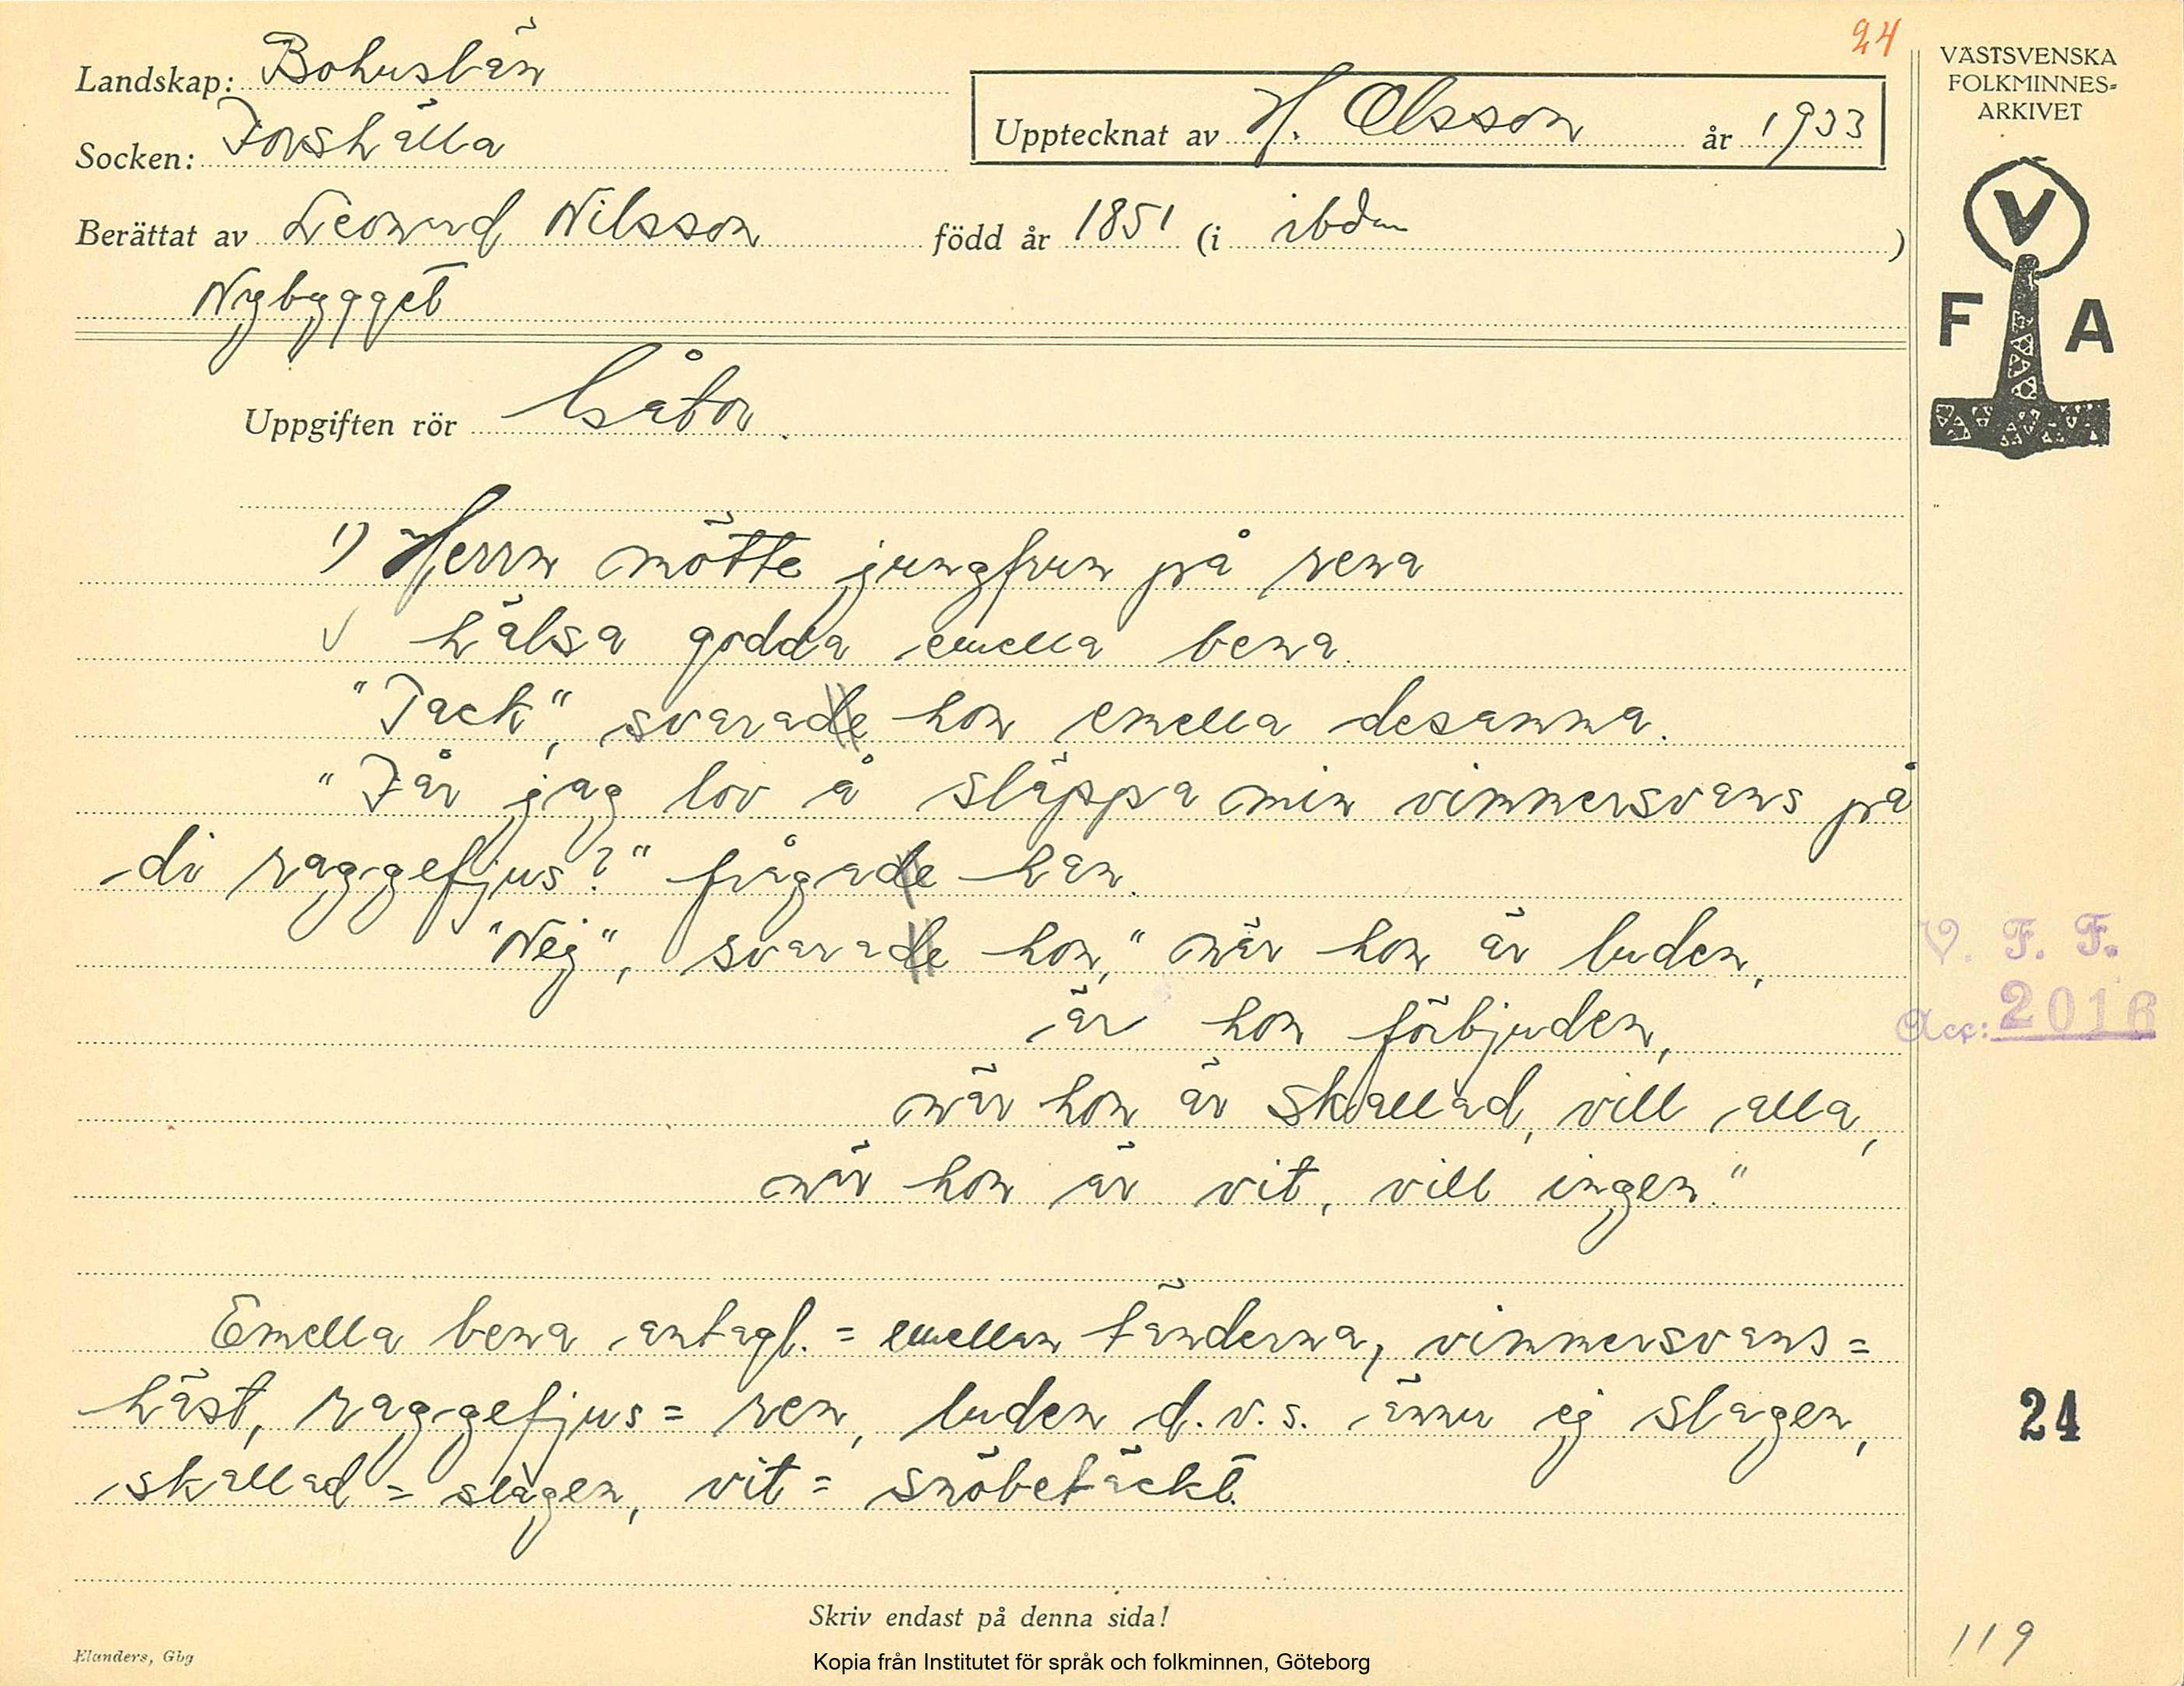 24
Landskap: Bohuslän
Socken: Forshälla
Upptecknat av H. Olsson år 1933
Berättat av Leonard Nilsson född år 1851 (i ibdm )
Nybygget
Uppgiften rör Gåtor.
VÄSTSVENSKA
FOLKMINNES-
ARKIVET
V
F A
1) Herrn mötte jungfrun på rena
✓ hälsa godda emella bena.
"Tack", svarade hon emella desamma.
"Får jag lov å släppa min vimmersvans på
di raggefjus?" frågade han.
"Nej", svarade hon, "när hon är luden,
är hon förbjuden,
när hon är skallad, vill alla,
när hon är vit, vill ingen."
V. F. F.
Acc: 2016
Emella bena antagl. = emellan tänderna, vimmersvans =
häst, raggefjus = ren, luden d.v.s. ännu ej slagen,
skallad = slagen, vit = snöbetäckt.
24
Skriv endast på denna sida!
Elanders, Gbg
119
Kopia från Institutet för språk och folkminnen, Göteborg